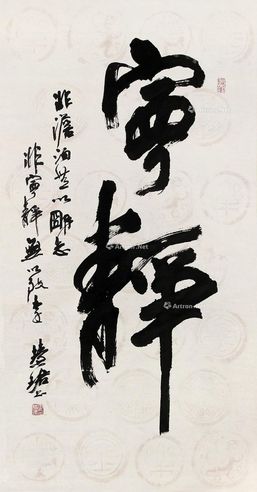 寧靜
非澹泊無以明志
非寧靜無以致遠